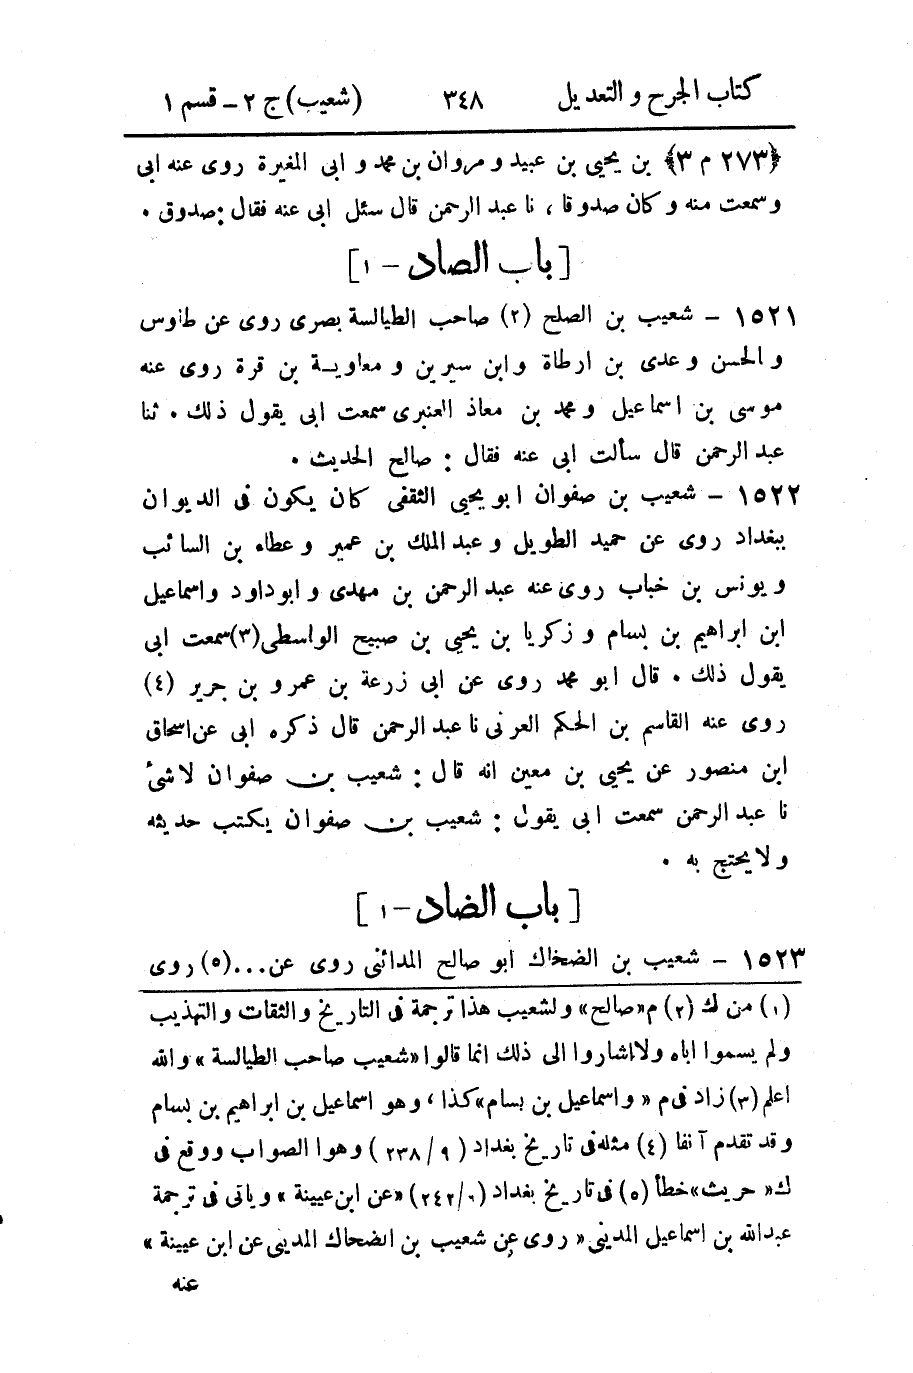 كتاب الجرح و التعديل ٣٤٨ (شعيب) ج ٢ – قسم ١
﴿٢٧٣ م ٣﴾ بن يحيى بن عبيد و مروان بن محمد و ابى المغيرة روى عنه ابى
و سمعت منه و كان صدوقا ، نا عبد الرحمن قال سئل ابى عنه فقال : صدوق .
[ باب الصاد – ١ ]
١٥٢١ – شعيب بن الصلح (٢) صاحب الطيالسة بصرى روى عن طاوس
و الحسن و عدى بن ارطاة و ابن سيرين و معاويـة بن قرة روى عنه
موسى بن اسماعيل و محمد بن معاذ العنبرى سمعت ابى يقول ذلك . ثنا
عبد الرحمن قال سألت ابى عنه فقال : صالح الحديث .
١٥٢٢ – شعيب بن صفوان ابو يحيى الثقفى كان يكون فى الديوان
ببغداد روى عن حميد الطويل و عبد الملك بن عمير و عطاء بن السائب
و يونس بن خباب روى عنه عبد الرحمن بن مهدى و ابو داود و اسماعيل
ابن ابراهيم بن بسام و زكريا بن يحيى بن صبيح الواسطى (٣) سمعت ابى
يقول ذلك . قال ابو محمد روى عن ابى زرعة بن عمرو بن جرير (٤)
روى عنه القاسم بن الحكم العرنى نا عبد الرحمن قال ذكره ابى عن اسحاق
ابن منصور عن يحيى بن معين انه قال : شعيب بن صفوان لا شئ
نا عبد الرحمن سمعت ابى يقول : شعيب بن صفوان يكتب حديثه
و لا يحتج به .
[ باب الضاد – ١ ]
١٥٢٣ – شعيب بن الضحاك ابو صالح المدائنى روى عن ... (٥) روى
(١) من ك (٢) م «صالح» و لشعيب هذا ترجمة فى التاريخ والثقات والتهذيب
ولم يسموا اباه ولا اشاروا الى ذلك انما قالوا «شعيب صاحب الطيالسة» والله
اعلم (٣) زاد فى م « و اسماعيل بن بسام» كذا ، وهو اسماعيل بن ابراهيم بن بسام
و قد تقدم آنفا (٤) مثله فى تاريخ بغداد (٩ / ٢٣٨) وهوا الصواب ووقع فى
ك « حريث» خطأ (٥) فى تاريخ بغداد (٩/ ٢٤٢) «عن ابن عيينة» وياتى فى ترجمة
عبدالله بن اسماعيل المدينى « روى عن شعيب بن الضحاك المدينى عن ابن عيينة »
عنه